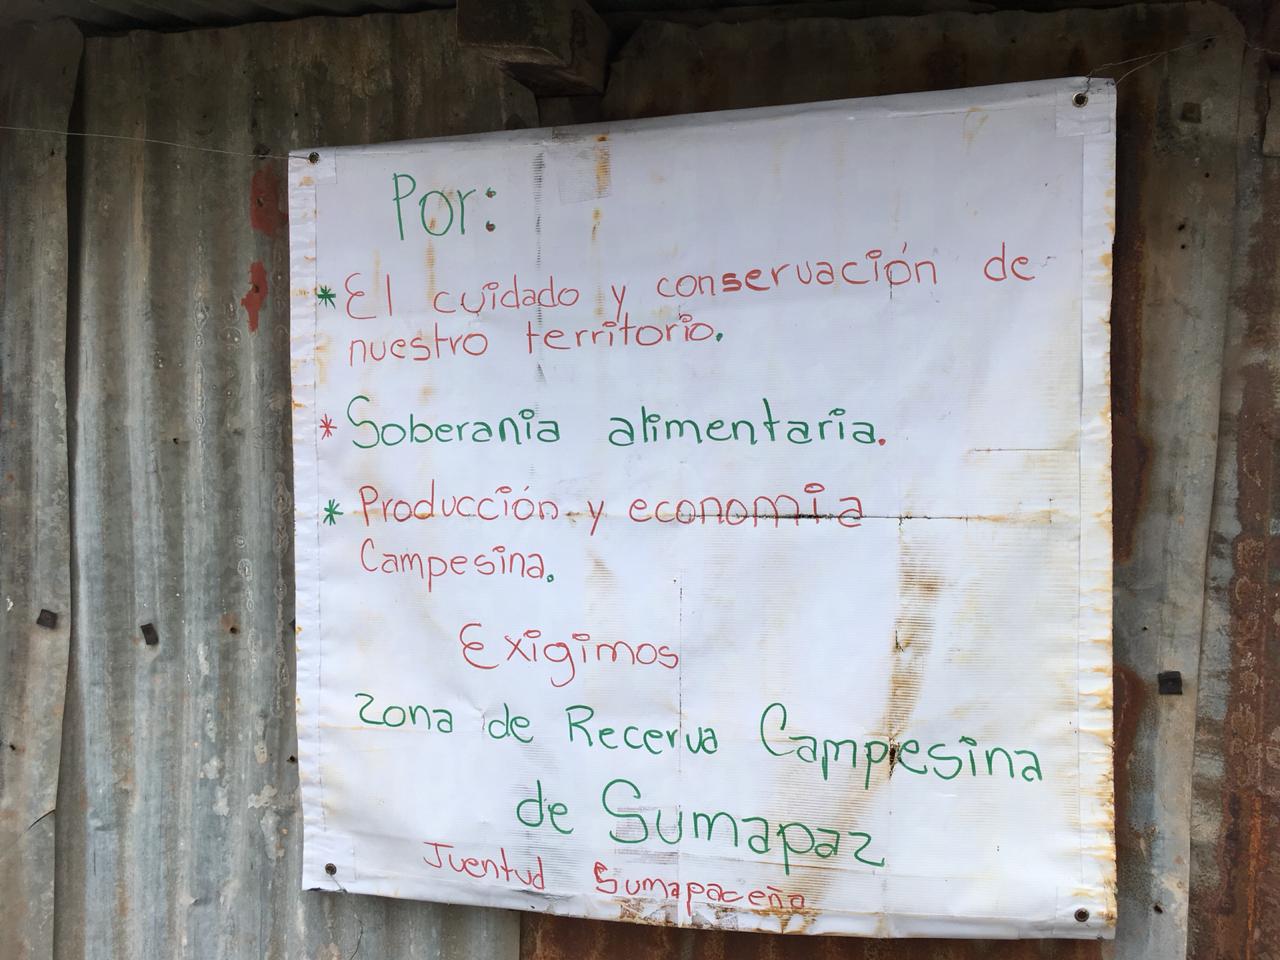 Por:
* El cuidado y conservación de
nuestro territorio.
* Soberania alimentaria.
* Producción y economia
Campesina.
Exigimos
Zona de Recerva Campesina
de Sumapaz
Juentud Sumapaceña